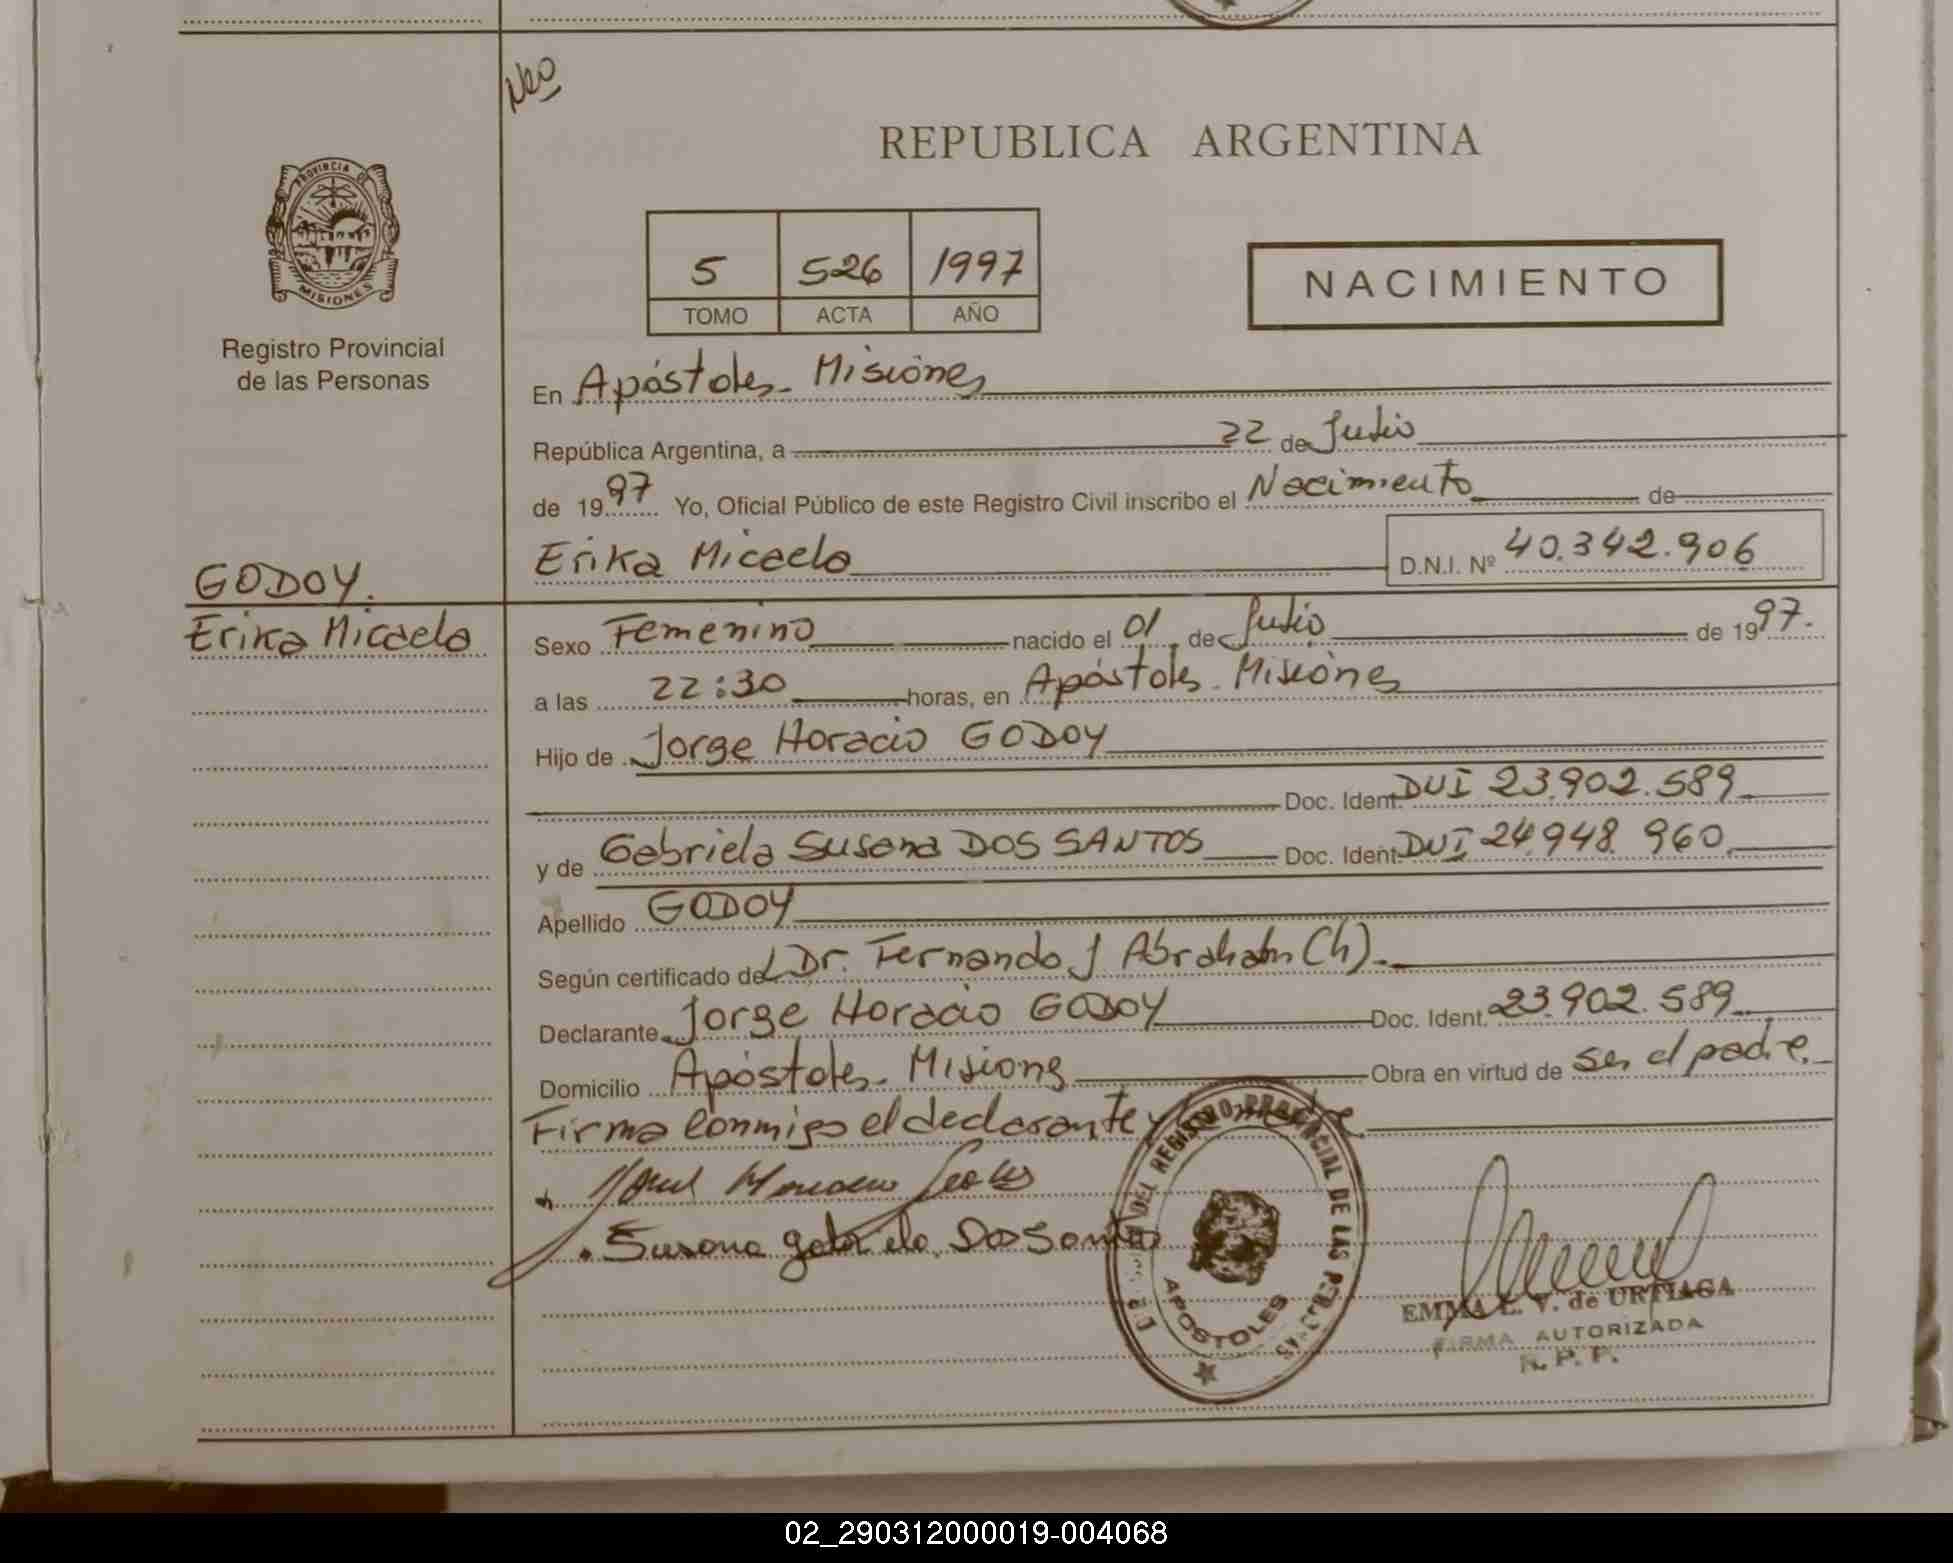 Nro
REPUBLICA ARGENTINA
PROVINCIA DE
MISIONES
5 526 1997
TOMO ACTA AÑO
NACIMIENTO
Registro Provincial
de las Personas
En Apóstoles - Misiones
República Argentina, a 22 de Julio
de 1997 Yo, Oficial Público de este Registro Civil inscribo el Nacimiento de
Erika Micaela D.N.I. Nº 40.342.906
GODOY.
Erika Micaela
Sexo Femenino nacido el 01 de Julio de 1997.
a las 22:30 horas, en Apóstoles - Misiones
Hijo de Jorge Horacio GODOY
Doc. Ident. DUI 23.902.589
y de Gabriela Susana DOS SANTOS Doc. Ident. DUI 24.948.960
Apellido GODOY
Según certificado del Dr. Fernando J Abraham (h).
Declarante Jorge Horacio GODOY Doc. Ident. 23.902.589
Domicilio Apóstoles - Misiones Obra en virtud de ser el padre.
Firma conmigo el declarante y la madre
Susana gabriela Dos Santos
DEL REGISTRO PROVINCIAL DE LAS PERSONAS
APOSTOLES
EMMA L. V. de URTIAGA
FIRMA AUTORIZADA
R. P. P.
02_290312000019-004068